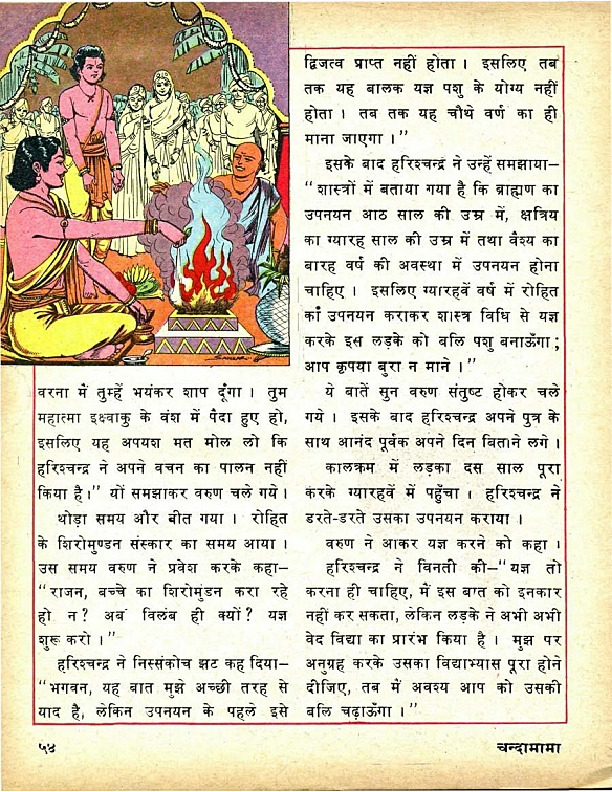 वरना मैं तुम्हें भयंकर शाप दूँगा । तुम
महात्मा इक्ष्वाकु के वंश में पैदा हुए हो,
इसलिए यह अपयश मत मोल लो कि
हरिश्चन्द्र ने अपने वचन का पालन नहीं
किया है।” यों समझाकर वरुण चले गये ।
थोड़ा समय और बीत गया । रोहित
के शिरोमुण्डन संस्कार का समय आया ।
उस समय वरुण ने प्रवेश करके कहा–
“राजन, बच्चे का शिरोमुंडन करा रहे
हो न? अब विलंब ही क्यों? यज्ञ
शुरू करो ।”
हरिश्चन्द्र ने निस्संकोच झट कह दिया–
“भगवन, यह बात मुझे अच्छी तरह से
याद है, लेकिन उपनयन के पहले इसे
द्विजत्व प्राप्त नहीं होता । इसलिए तब
तक यह बालक यज्ञ पशु के योग्य नहीं
होता । तब तक यह चौथे वर्ण का ही
माना जाएगा ।”
इसके बाद हरिश्चन्द्र ने उन्हें समझाया–
“शास्त्रों में बताया गया है कि ब्राह्मण का
उपनयन आठ साल की उम्र में, क्षत्रिय
का ग्यारह साल की उम्र में तथा वैश्य का
बारह वर्ष की अवस्था में उपनयन होना
चाहिए । इसलिए ग्यारहवें वर्ष में रोहित
का उपनयन कराकर शास्त्र विधि से यज्ञ
करके इस लड़के को बलि पशु बनाऊँगा;
आप कृपया बुरा न माने ।”
ये बातें सुन वरुण संतुष्ट होकर चले
गये । इसके बाद हरिश्चन्द्र अपने पुत्र के
साथ आनंद पूर्वक अपने दिन बिताने लगे ।
कालक्रम में लड़का दस साल पूरा
करके ग्यारहवें में पहुँचा । हरिश्चन्द्र ने
डरते-डरते उसका उपनयन कराया ।
वरुण ने आकर यज्ञ करने को कहा ।
हरिश्चन्द्र ने विनती की–“यज्ञ तो
करना ही चाहिए, मैं इस बात को इनकार
नहीं कर सकता, लेकिन लड़के ने अभी अभी
वेद विद्या का प्रारंभ किया है । मुझ पर
अनुग्रह करके उसका विद्याभ्यास पूरा होने
दीजिए, तब मैं अवश्य आप को उसकी
बलि चढ़ाऊँगा ।”
५४
चन्दामामा